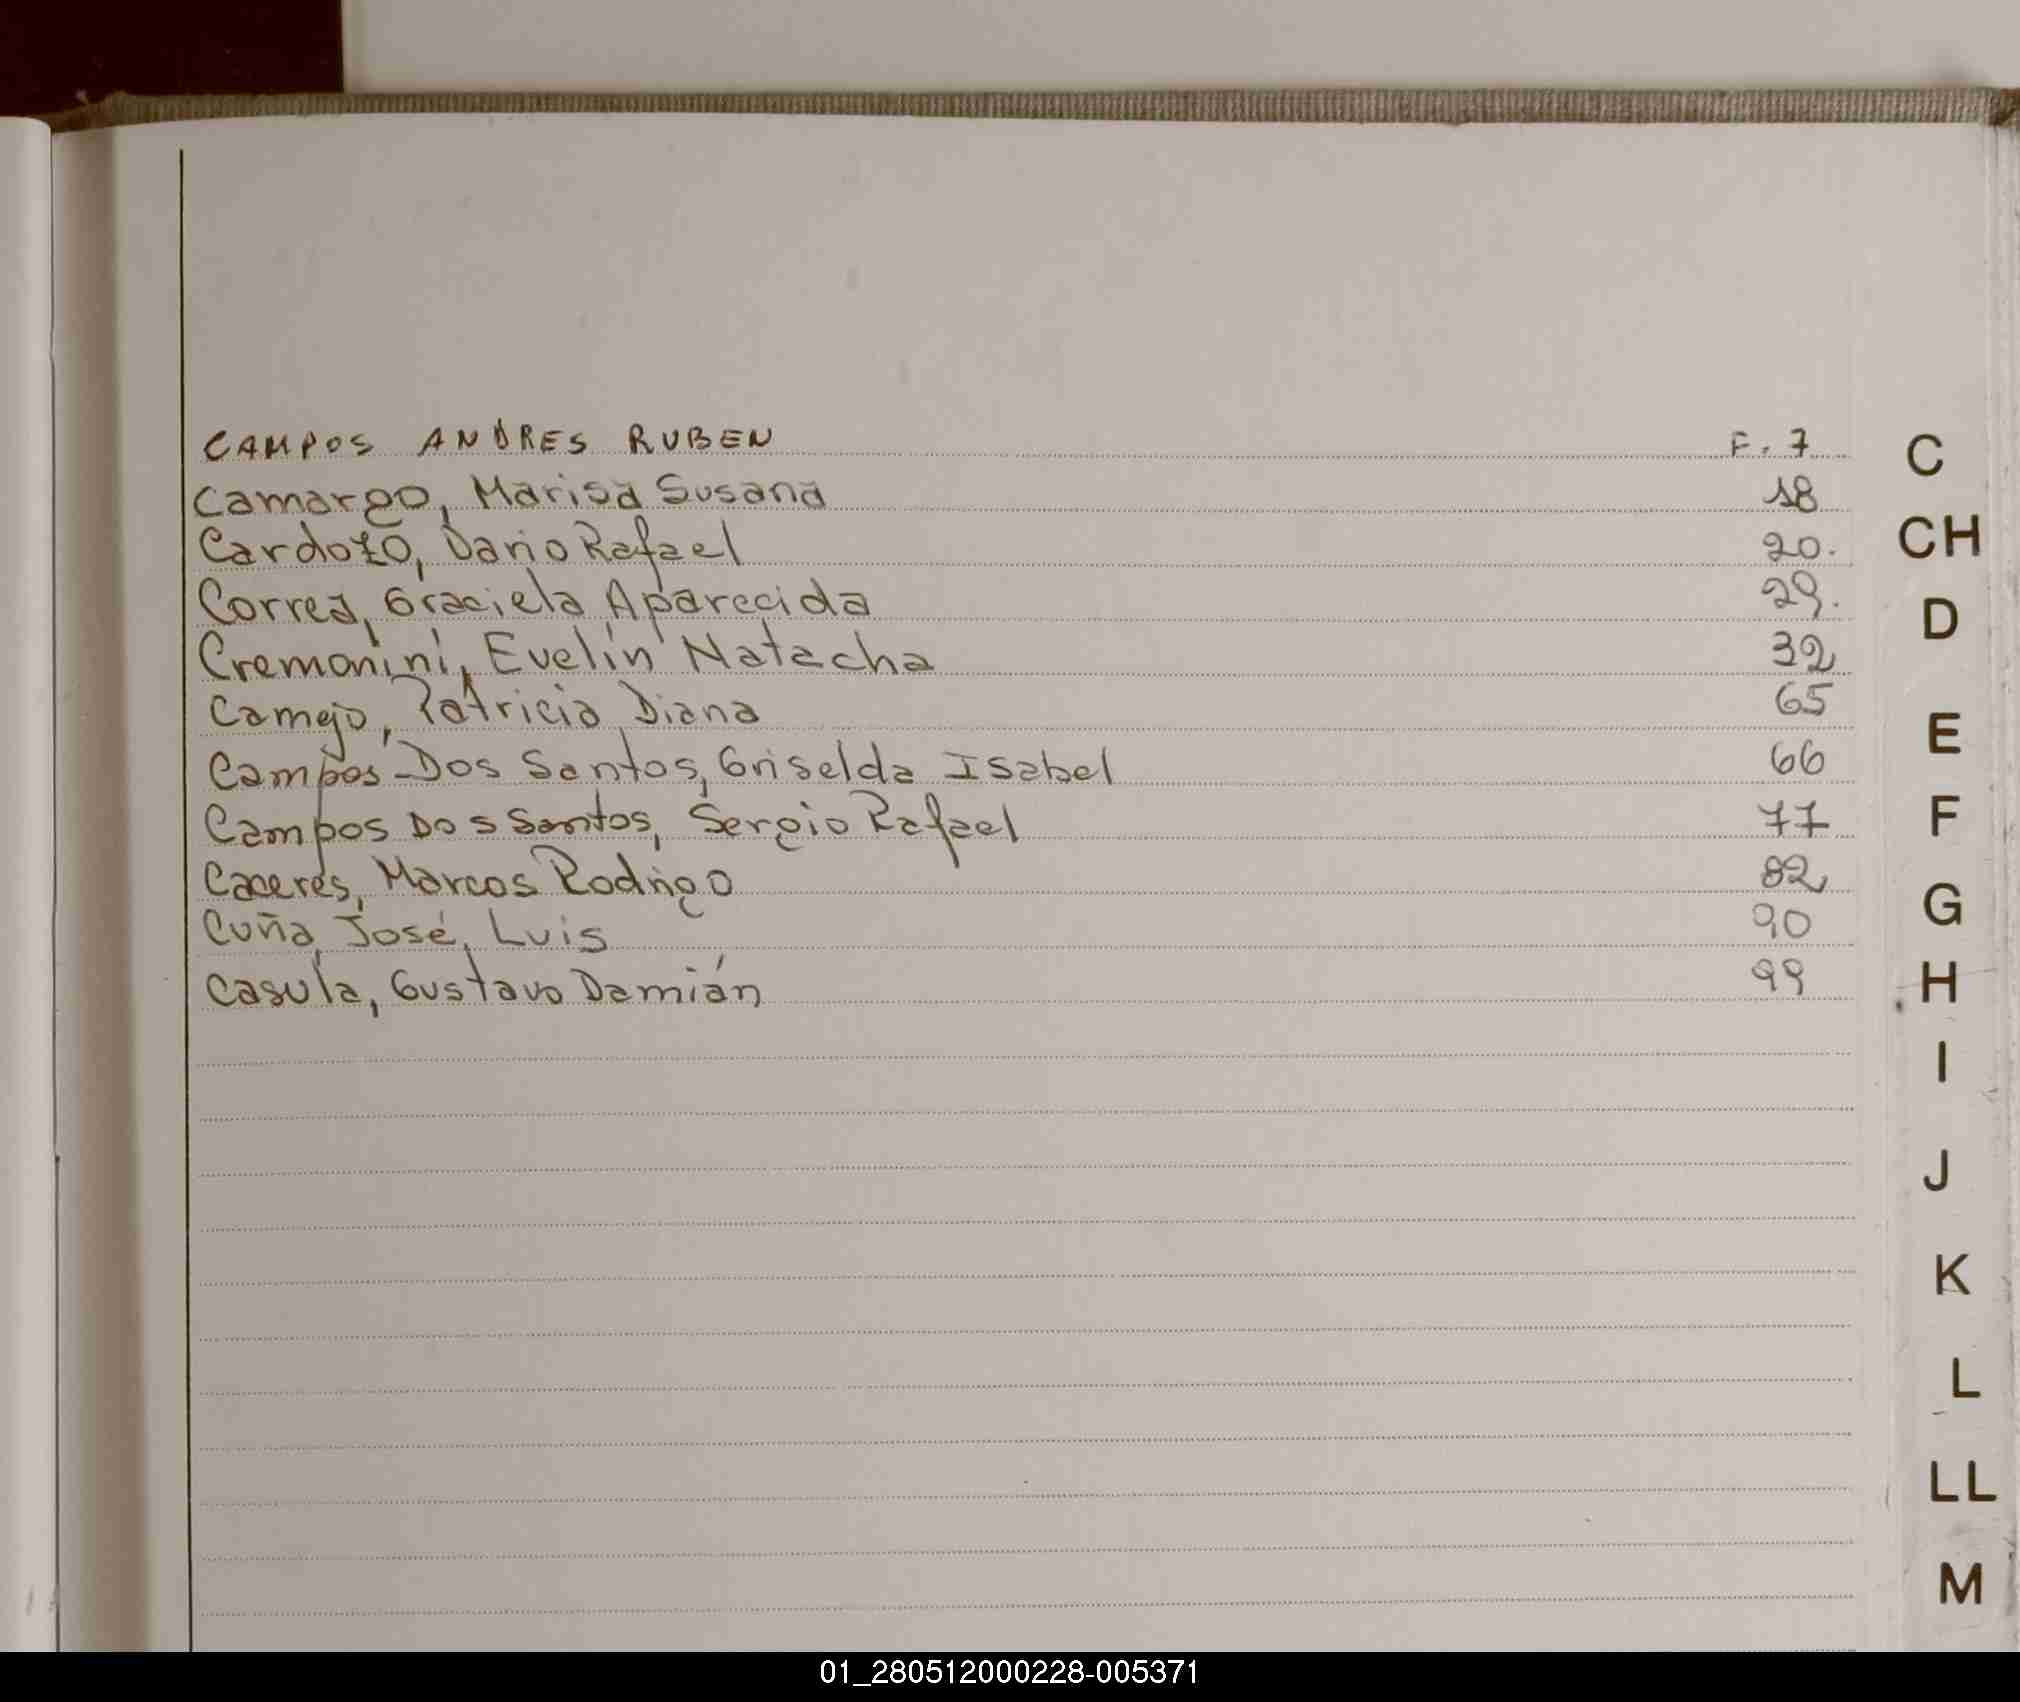 CAMPOS ANDRES RUBEN F. 7
Camargo, Marisa Susana 18
Cardozo, Dario Rafael 20.
Correa, Graciela Aparecida 29.
Cremonini, Evelin Natacha 32
Camejo, Patricia Diana 65
Campos Dos Santos, Griselda Isabel 66
Campos Dos Santos, Sergio Rafael 77
Caceres, Marcos Rodrigo 82
Cuña, José, Luis 90
Casula, Gustavo Damián 99
C
CH
D
E
F
G
H
I
J
K
L
LL
M
01_280512000228-005371